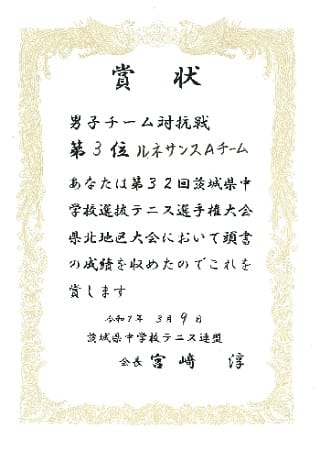 賞状
男子チーム対抗戦
第3位 ルネサンスAチーム
あなたは第32回茨城県中
学校選抜テニス選手権大会
県北地区大会において頭書
の成績を収めたのでこれを
賞します
令和7年 3月 9日
茨城県中学校テニス連盟
会長 宮﨑 淳